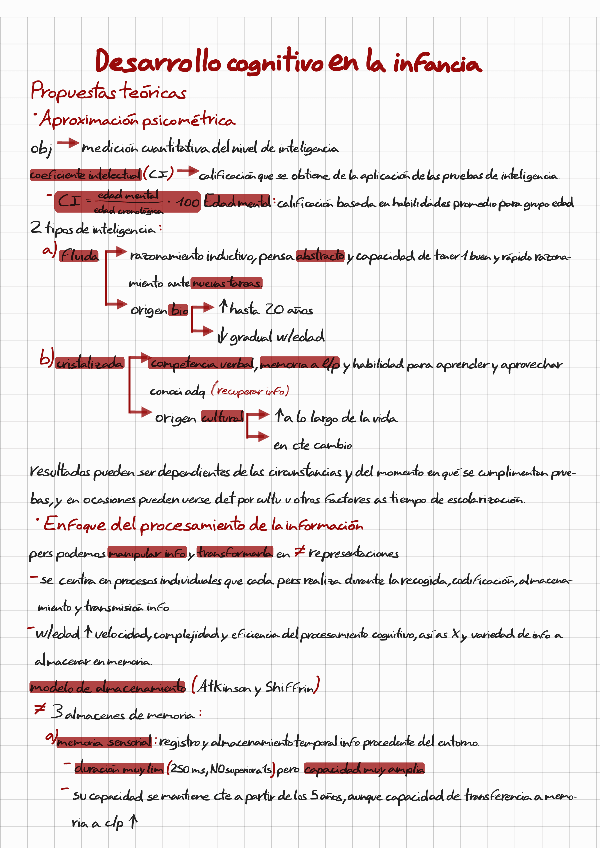 Desarrollo cognitivo en la infancia
Propuestas teóricas
· Aproximación psicométrica
obj → medición cuantitativa del nivel de inteligencia
coeficiente intelectual (CI) → calificación que se obtiene de la aplicación de las pruebas de inteligencia
- CI = edad mental / edad cronológica · 100 Edad mental: calificación basada en habilidades promedio para grupo edad
2 tipos de inteligencia:
a) fluida → razonamiento inductivo, pensa abstracto y capacidad de tener 1 buen y rápido razona-
miento ante nuevas tareas
→ origen bio → ↑ hasta 20 años
→ ↓ gradual w/edad
b) cristalizada → competencia verbal, memoria a l/p y habilidad para aprender y aprovechar
conoci adq (recuperar info)
→ origen cultural → ↑ a lo largo de la vida
→ en cte cambio
resultados pueden ser dependientes de las circunstancias y del momento en qué se cumplimentan prue-
bas, y en ocasiones pueden verse det por cultu u otros factores as tiempo de escolarización.
· Enfoque del procesamiento de la información
pers podemos manipular info y transformarla en ≠ representaciones
- se centra en procesos individuales que cada pers realiza durante la recogida, codificación, almacena-
miento y transmisión info
- w/edad ↑ velocidad, complejidad y eficiencia del procesamiento cognitivo, así as X y variedad de info a
almacenar en memoria.
modelo de almacenamiento (Atkinson y Shiffrin)
≠ 3 almacenes de memoria:
a) memoria sensorial: registro y almacenamiento temporal info procedente del entorno.
- duración muy lim (250 ms, NO superior a 1s) pero capacidad muy amplia
- su capacidad se mantiene cte a partir de los 5 años, aunque capacidad de transferencia a memo-
ria a c/p ↑